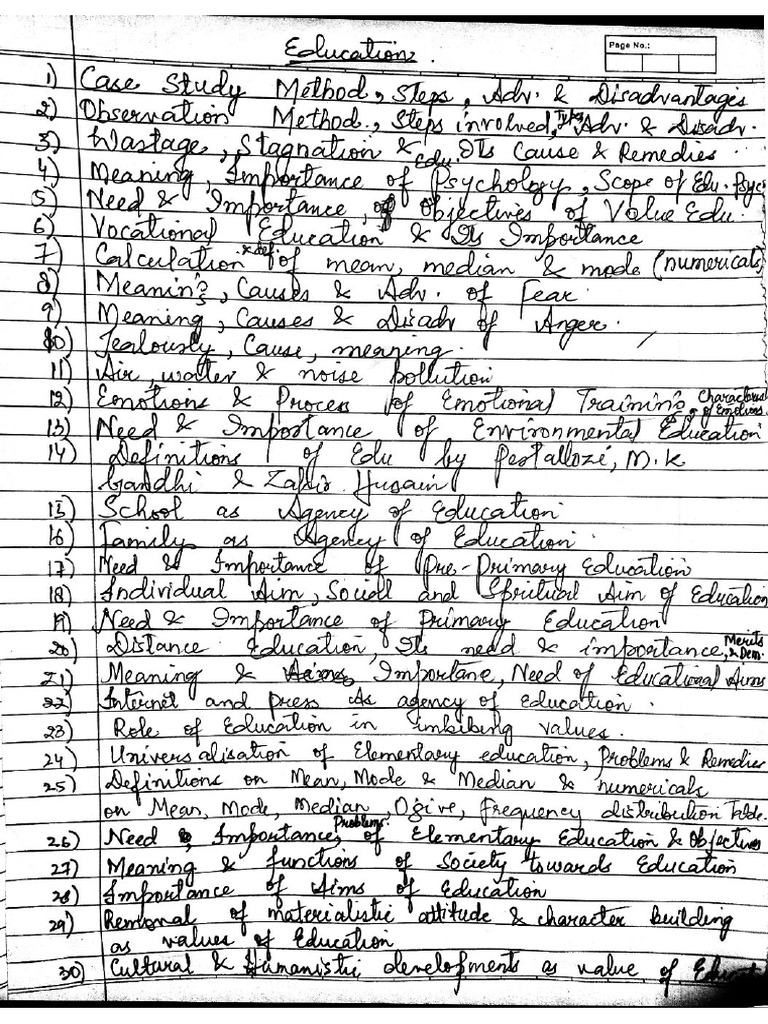 Education
Page No.:
1) Case Study Method, Steps, Adv. & Disadvantages
2) Observation Method, Steps involved, Types Adv. & Disadv.
3) Wastage, Stagnation & Its Cause & Remedies
4) Meaning, Importance of Edu. Psychology, Scope of Edu. Psyc
5) Need & Importance, of Objectives of Value Edu.
6) Vocational Education & Its Importance
7) Calculation & def. of mean, median & mode (numericals)
8) Meaning, Causes & Adv. of Fear
9) Meaning, Causes & Disadv of Anger.
10) Jealously, Cause, meaning.
11) Air, water & noise pollution
12) Emotions & Process of Emotional Training, of Emotions
13) Need & Importance of Environmental Education
14) Definitions of Edu by Pestallozi, M.K
Gandhi & Zakir Husain
15) School as Agency of Education
16) Family as Agency of Education.
17) Need & Importance of Pre-Primary Education
18) Individual Aim, Social and Spritual Aim of Education
19) Need & Importance of Primary Education
20) Distance Education, Its need & importance, Merits & Dem.
21) Meaning & Importane, Need of Educational Aims
22) Internet and press As agency of education.
23) Role of Education in imbibing values.
24) Universalisation of Elementary education, Problems & Remedies
25) Definitions on Mean, Mode & Median & numericals
on Mean, Mode, Median, Ogive, frequency distribution Table.
26) Need & Importance, Problems. of Elementary Education & Objectives
27) Meaning & functions of Society towards Education
28) Importance of Aims of Education
29) Removal of materialistic attitude & character building
as values of Education
30) Cultural & Humanistic developments as value of